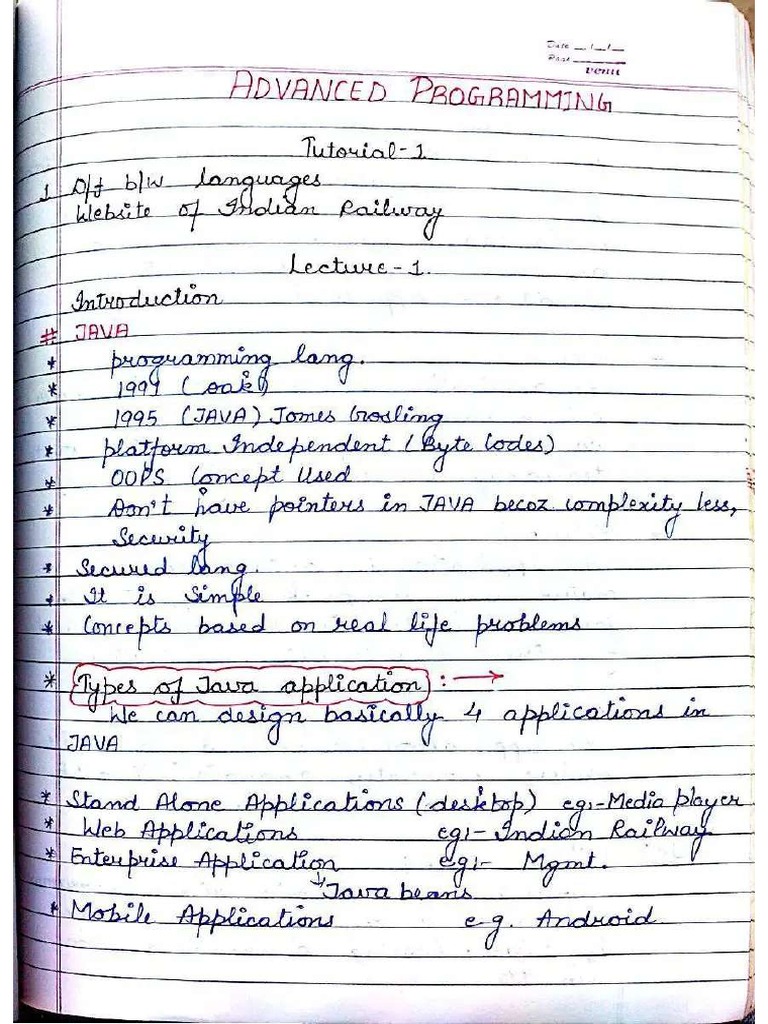 Date __/__/__
Page
venu
ADVANCED PROGRAMMING
Tutorial-1
1 D/f b/w languages
Website of Indian Railway
Lecture-1.
Introduction
# JAVA
* programming lang.
* 1991 (oak)
* 1995 (JAVA) James Gosling
* platform Independent (Byte Codes)
* OOPS Concept Used
* Don't have pointers in JAVA becoz complexity less,
Security
* Secured lang.
* It is Simple
* Concepts based on real life problems
* Types of Java application : →
We can design basically 4 applications in
JAVA
* Stand Alone Applications (desktop) eg:-Media player
* Web Applications eg:- Indian Railway
* Enterprise Application eg:- Mgmt.
↓ Java beans
* Mobile Applications e.g. Android